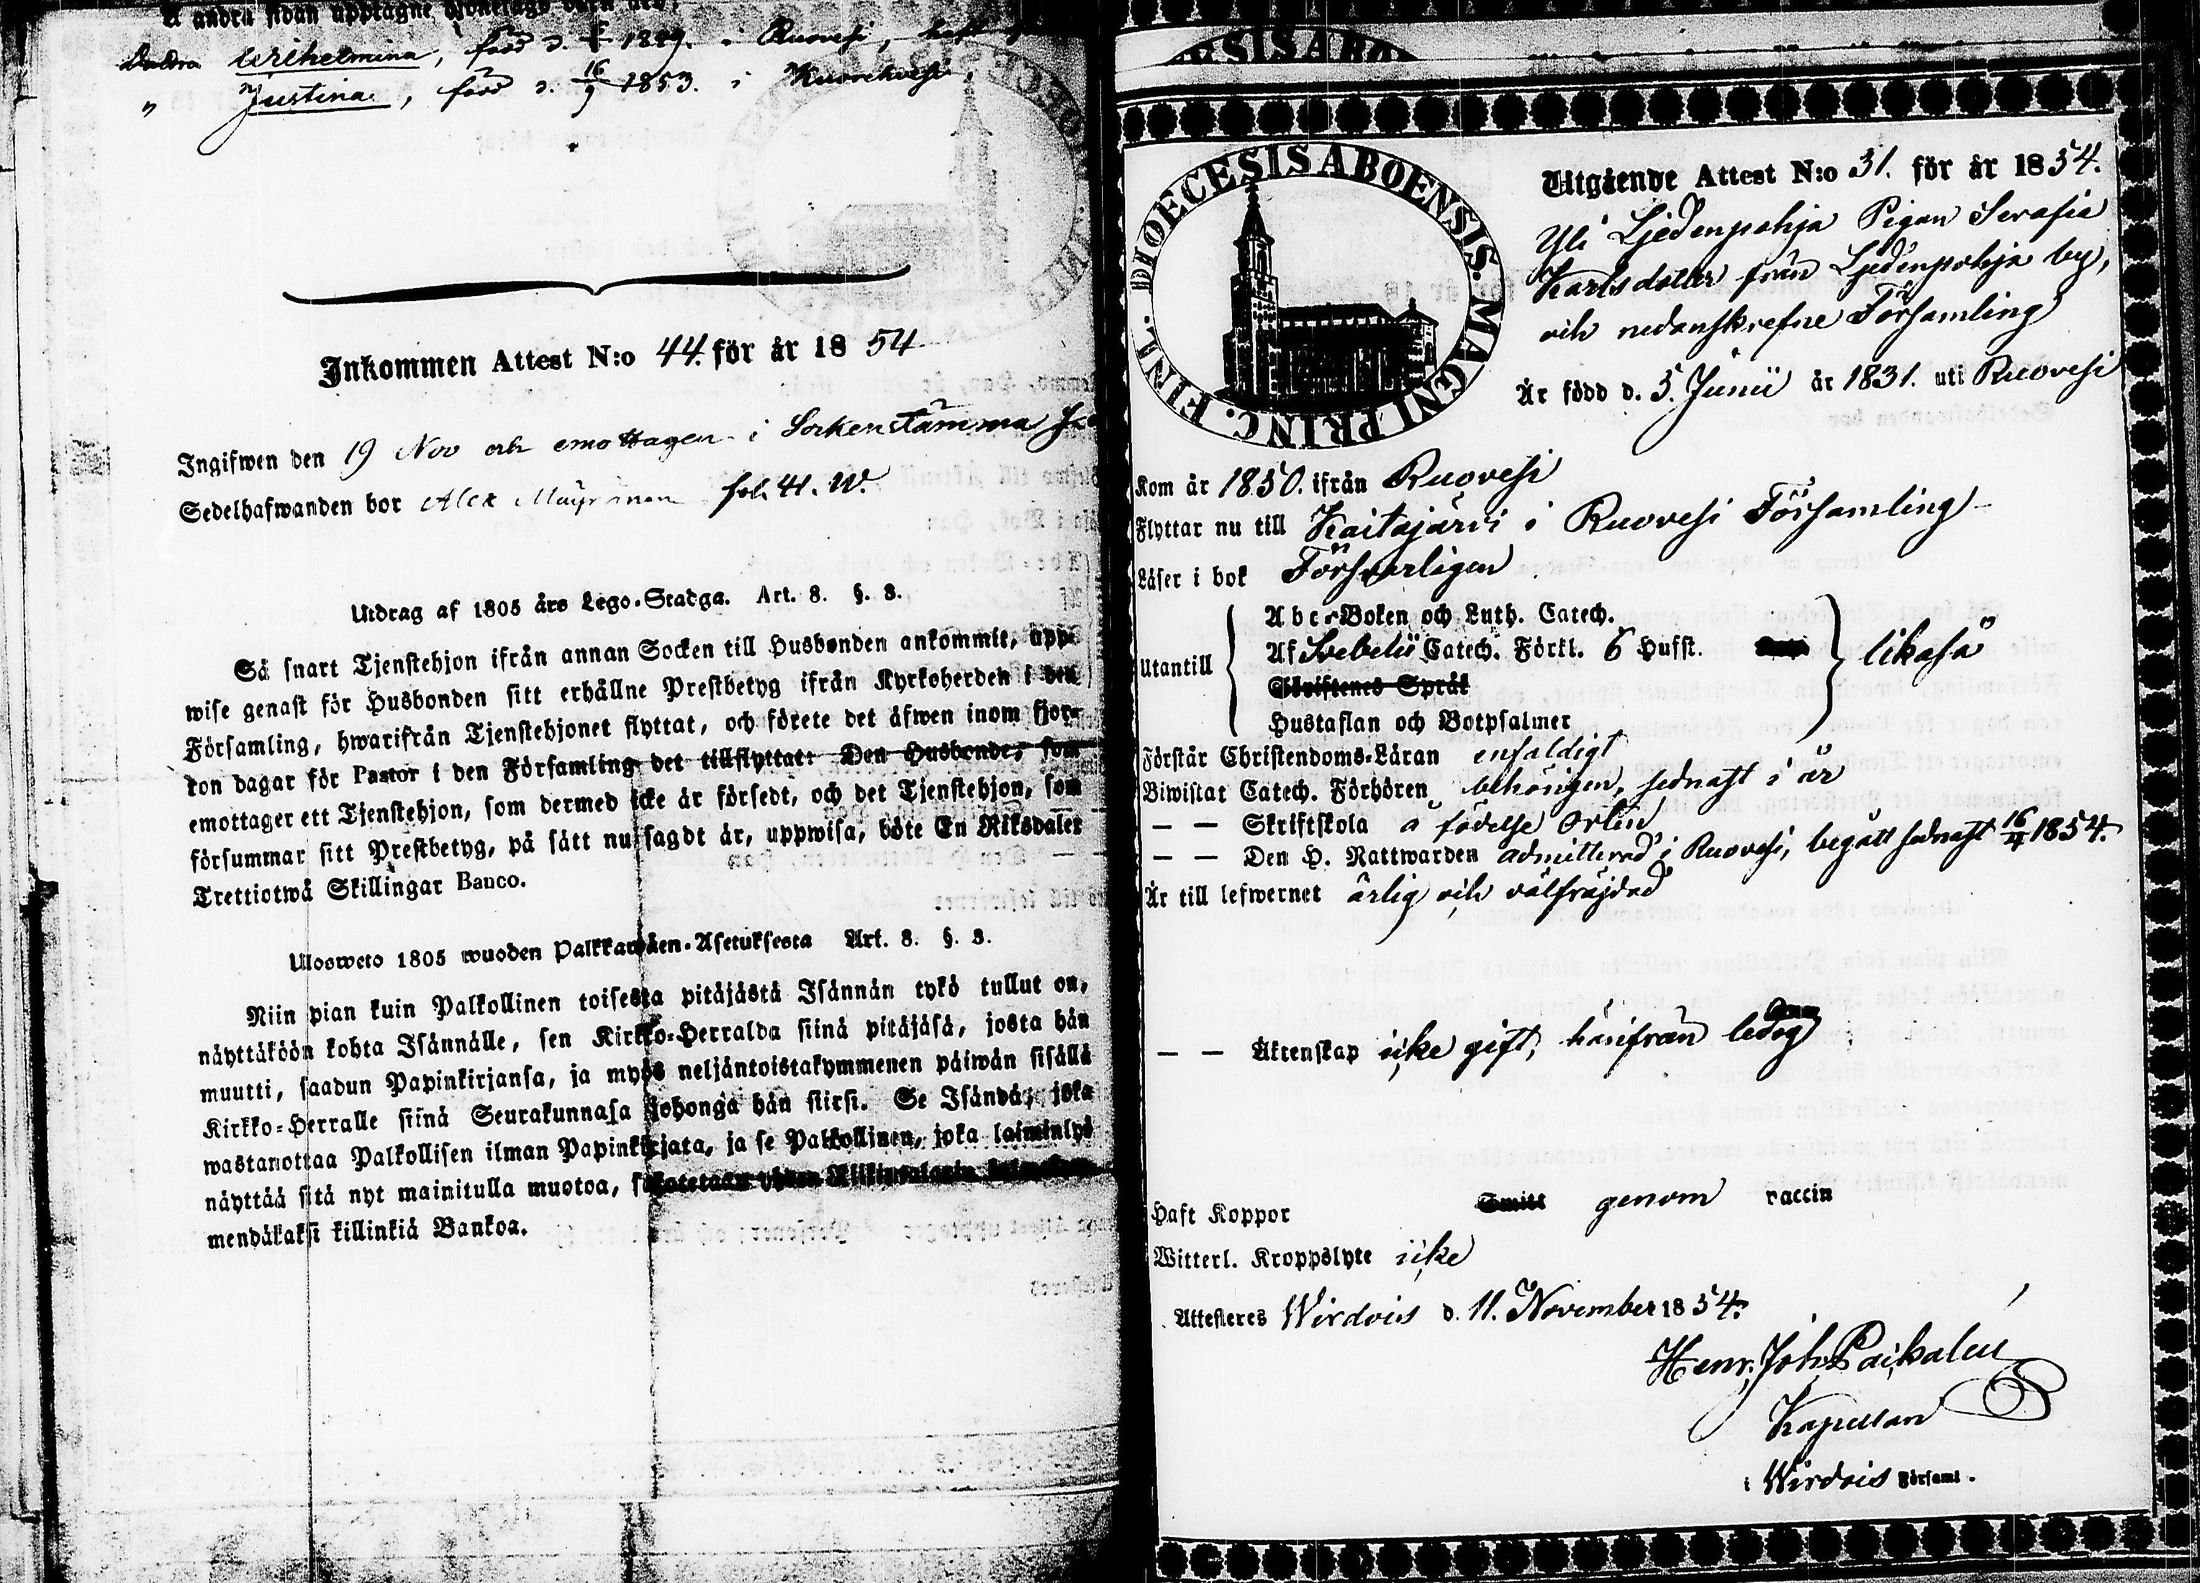 å andra sidan upptagne
Wilhelmina, född d. i Ruovesi, haft
" Justina, född d. 16/9 1853. i Kuorehvesi.
Inkommen Attest N:o 44. för år 1854
Ingifwen den 19 Nov och emottagen i Sockenstämma
Sedelhafwanden bor Alex fol. 41. W.
Utdrag af 1805 års Lego-Stadga. Art. 8. §. 3.
Så snart Tjenstehjon ifrån annan Socken till Husbonden ankommit, upp-
wise genast för Husbonden sitt erhållne Prestbetyg ifrån Kyrkoherden i den
Församling, hwarifrån Tjenstehjonet flyttat, och förete det äfwen inom fjor-
ton dagar för Pastor i den Församling det tillflyttat: Den Husbonde, som
emottager ett Tjenstehjon, som dermed icke är försedt, och det Tjenstehjon, som
försummar sitt Prestbetyg, på sätt nu sagdt är, uppwisa, böte En Riksdaler
Trettiotwå Skillingar Banco.
Ulosweto 1805 wuoden Palkkawäen-Asetuksesta Art. 8. §. 3.
Niin pian kuin Palkollinen toisesta pitäjästä Isännän tykö tullut on,
näyttäköön kohta Isännälle, sen Kirkko-Herralda siinä pitäjäsä, josta hän
muutti, saadun Papinkirjansa, ja myös neljäntoistakymmenen päiwän sisällä
Kirkko-Herralle siinä Seurakunnasa johonga hän siirsi. Se Isändä, joka
wastanottaa Palkollisen ilman Papinkirjata, ja se Palkollinen, joka laiminlyö
näyttää sitä nyt mainitulla muotoa, sakotetaan yhden Riikintalarin
mendäkaksi killinkiä Bankoa.
DIOECESIS ABOENSIS. MAGNI PRINC. FINL.
Utgående Attest N:o 31. för år 1854.
Yli Ljedenpohja Pigan Serafia
Karlsdotter från Ljedenpohja by,
och nedanskrefne Församling
Är född d. 5. Junii år 1831. uti Ruovesi
Kom år 1850. ifrån Ruovesi
Flyttar nu till Kaitajärvi i Ruovesi Församling
Läser i bok Försvarligen
Utantill
Abc-Boken och Luth. Catech.
Af Svebelii Catech. Förkl. 6 Hufst.
likaså
Skriftenes Språk
Hustaflan och Botpsalmer
Förstår Christendoms-Läran enfaldigt
Biwistat Catech. Förhören behörigen, sednast i år
— — Skriftskola å födelse Orten
— — Den H. Nattwarden admitterad i Ruovesi, begått sednast 16/4 1854.
Är till lefwernet ärlig och välfräjdad
— — Äktenskap icke gift, härifrån ledig
Haft Koppor genom vaccin
Witterl. Kroppslyte icke
Attesteres Wirdois d. 11. November 1854.
Henr. Joh. Paikalén
Kapellan
i Wirdois Församl.